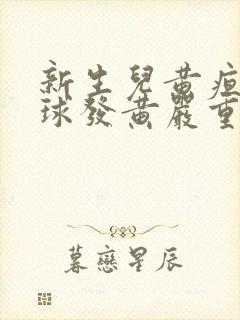 新生兒黃疸
球發黃嚴重
暮戀星辰